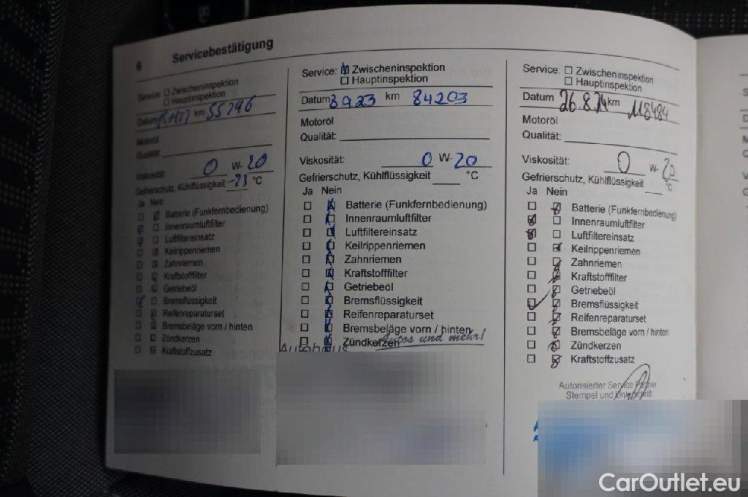 6 Servicebestätigung
Service: ☐ Zwischeninspektion
☐ Hauptinspektion
Datum km 55796
Motoröl
Qualität:
Viskosität: 0 W- 20
Gefrierschutz, Kühlflüssigkeit °C
Ja Nein
Batterie (Funkfernbedienung)
Innenraumluftfilter
Luftfiltereinsatz
Keilrippenriemen
Zahnriemen
Kraftstofffilter
Getriebeöl
Bremsflüssigkeit
Reifenreparaturset
Bremsbeläge vorn / hinten
Zündkerzen
Kraftstoffzusatz
Service: Zwischeninspektion
☐ Hauptinspektion
Datum 8923 km 84203
Motoröl
Qualität:
Viskosität: 0 W- 20
Gefrierschutz, Kühlflüssigkeit °C
Ja Nein
Batterie (Funkfernbedienung)
Innenraumluftfilter
Luftfiltereinsatz
Keilrippenriemen
Zahnriemen
Kraftstofffilter
Getriebeöl
Bremsflüssigkeit
Reifenreparaturset
Bremsbeläge vorn / hinten
Zündkerzen
Autohaus Autos und mehr!
Service: ☐ Zwischeninspektion
☐ Hauptinspektion
Datum 26.8.24 km 118484
Motoröl
Qualität:
Viskosität: 0 W- 20
Gefrierschutz, Kühlflüssigkeit °C
Ja Nein
Batterie (Funkfernbedienung)
Innenraumluftfilter
Luftfiltereinsatz
Keilrippenriemen
Zahnriemen
Kraftstofffilter
Getriebeöl
Bremsflüssigkeit
Reifenreparaturset
Bremsbeläge vorn / hinten
Zündkerzen
Kraftstoffzusatz
Autorisierter Service Partner
Stempel und Unterschrift
CarOutlet.eu